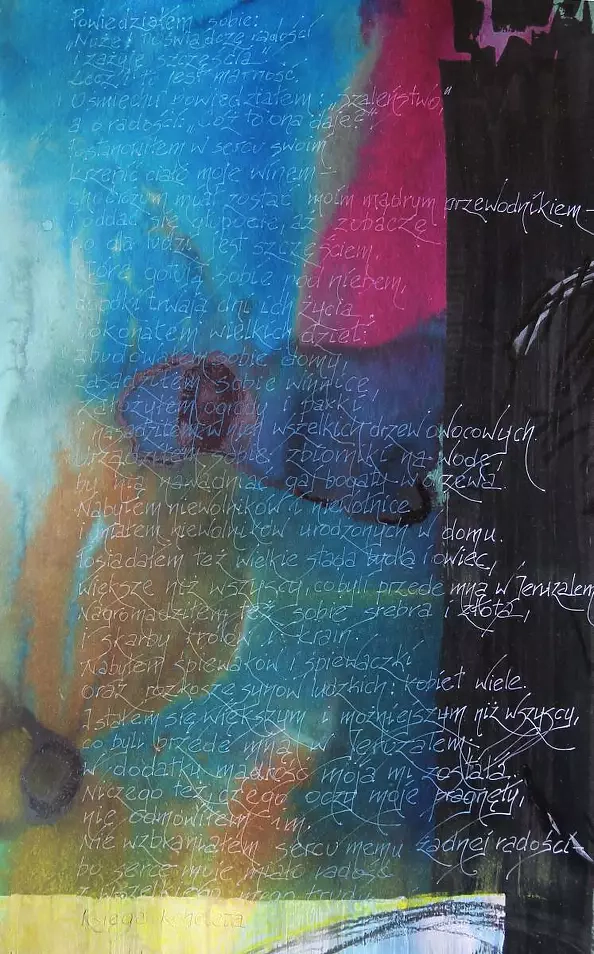 Powiedziałem sobie:
„Nuże! Doświadczę radości
i zażyję szczęścia"
Lecz i to jest marność
O śmiechu powiedziałem: „Szaleństwo,"
a o radości: „Cóż to ona daje?"
Postanowiłem w sercu swoim
krzepić ciało moje winem -
chociaż rozum miał zostać moim mądrym przewodnikiem -
oddać się głupocie, aż zobaczę
co dla ludzi jest szczęściem,
które gotują sobie pod niebem,
dopóki trwają dni ich życia.
Dokonałem wielkich dzieł:
zbudowałem sobie domy,
zasadziłem sobie winnice,
Założyłem ogrody i parki
i nasadziłem w nich wszelkich drzew owocowych.
Urządziłem sobie zbiorniki na wodę,
by nią nawadniać gaj bogaty w drzewa.
Nabyłem niewolników i niewolnice
i miałem niewolników urodzonych w domu.
Posiadałem też wielkie stada bydła i owiec,
większe niż wszyscy, co byli przede mną w Jeruzalem
Nagromadziłem też sobie srebra i złota,
i skarby królów i krain.
Nabyłem śpiewaków i śpiewaczki
oraz rozkosze synów ludzkich: kobiet wiele.
I stałem się większym i możniejszym niż wszyscy,
co byli przede mną w Jeruzalem;
w dodatku mądrość moja mi została.
Niczego też, czego oczy moje pragnęły,
nie odmówiłem im.
Nie wzbraniałem sercu memu żadnej radości -
bo serce moje miało radość
z wszelkiego mego trudu
Księga Koheleta